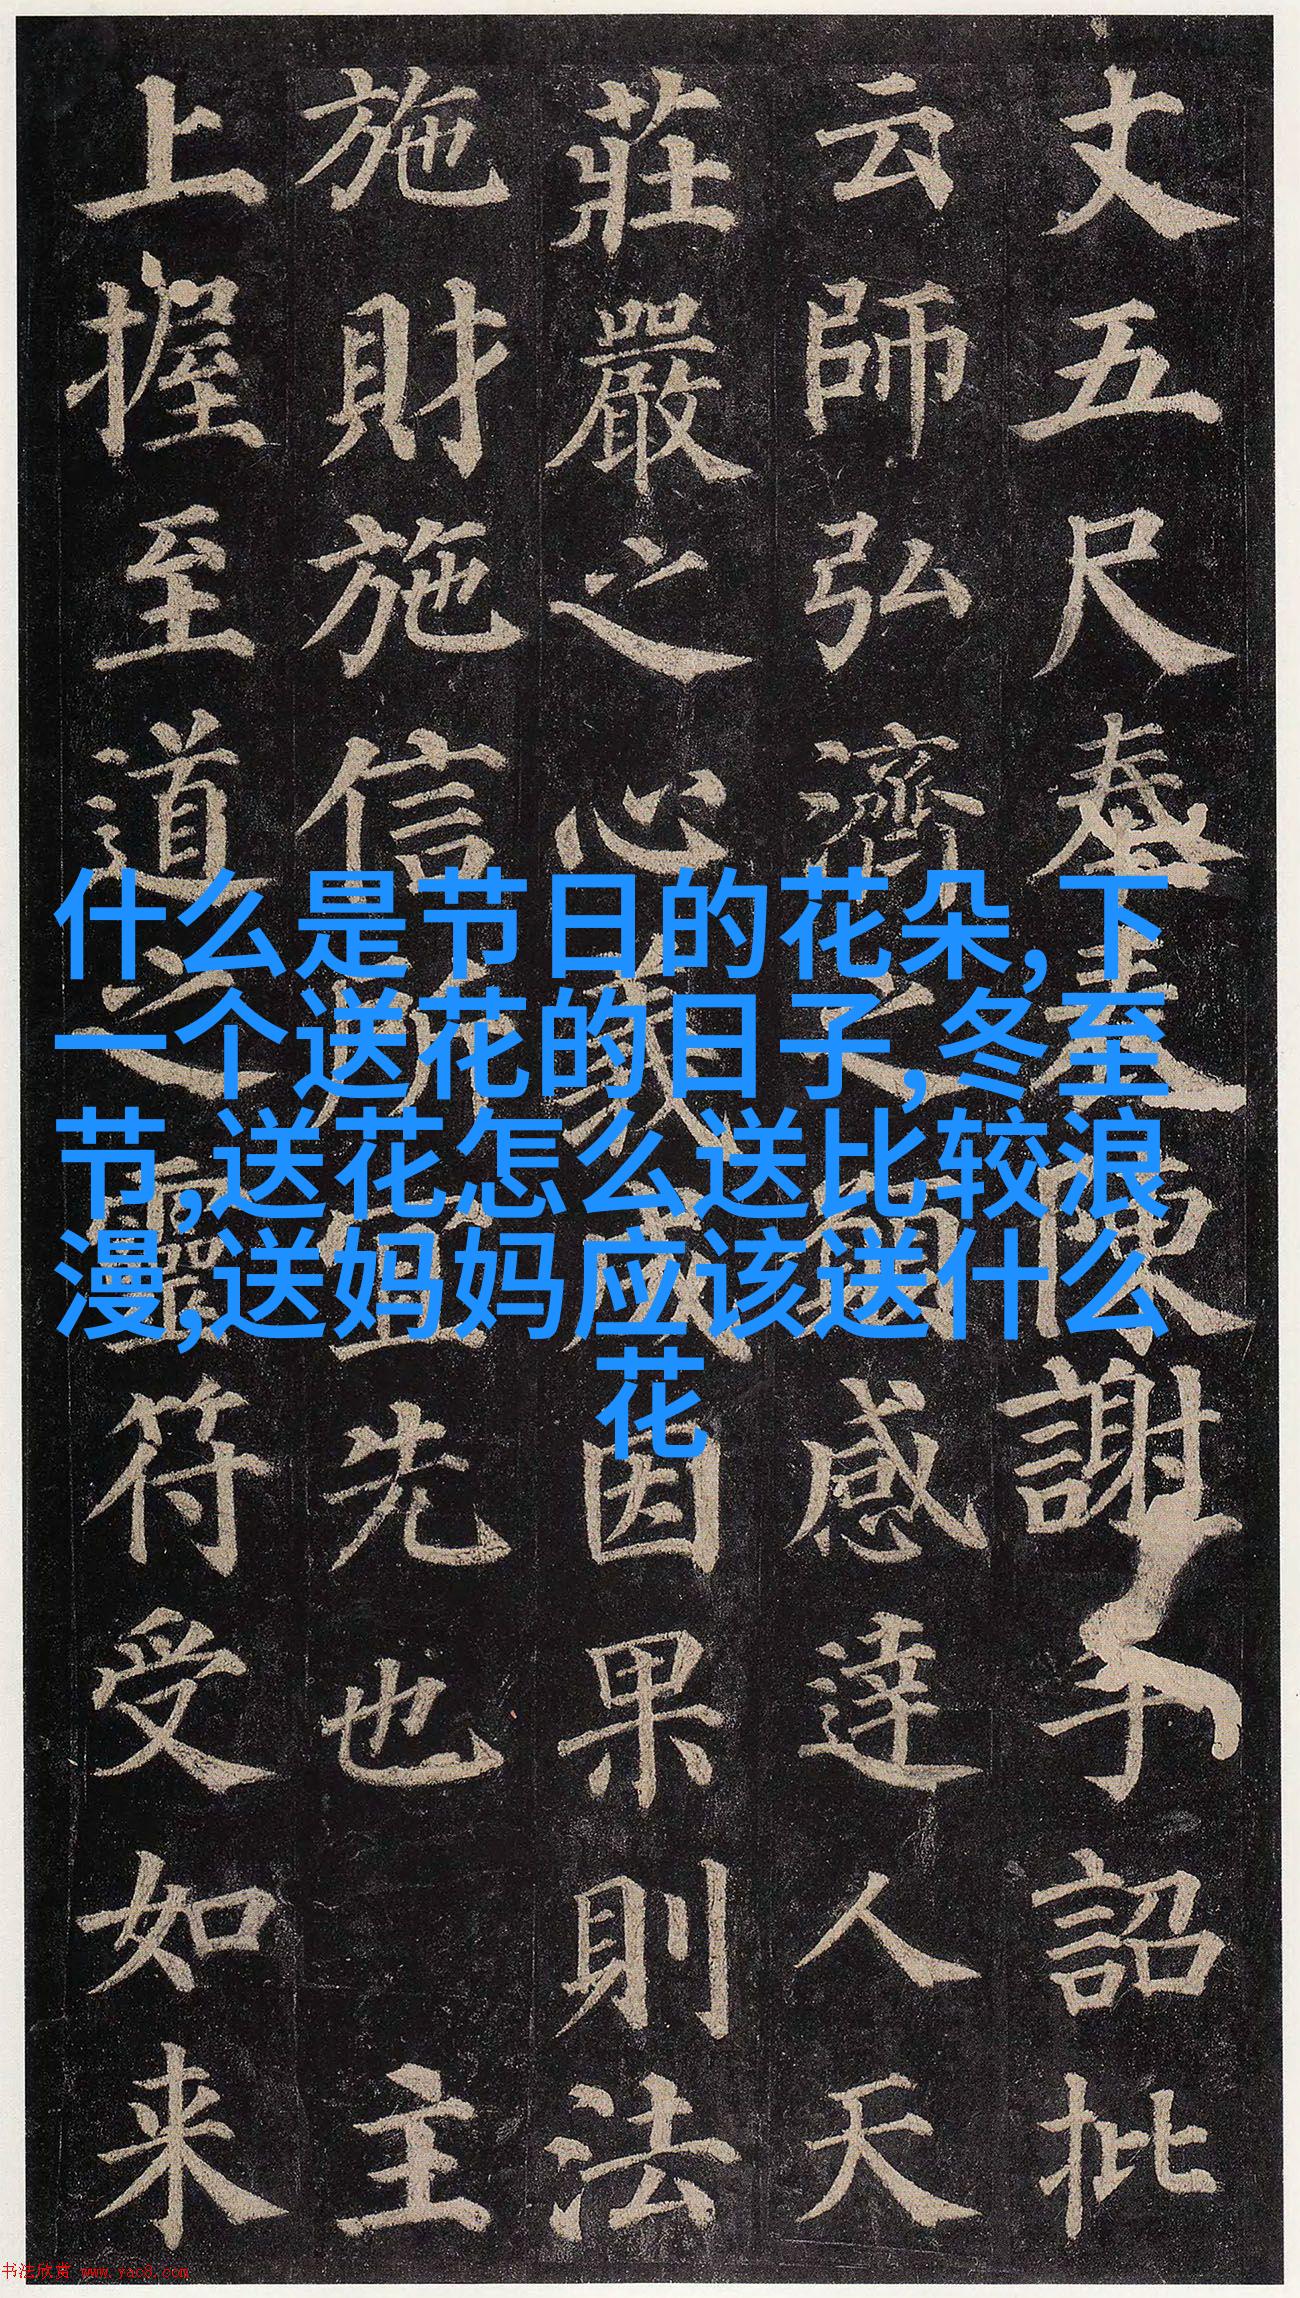 什么是节日的花朵,下
一个送花的日子,冬至
节,送花怎么送比较浪
漫,送妈妈应该送什么
花
丈五尺奉表陳謝手詔批
云師弘濟之願感達人天
莊嚴之心義成因果則法
施財施信所宜先也主
上握至道之靈符受如来
书法欣赏 www.yac8.com